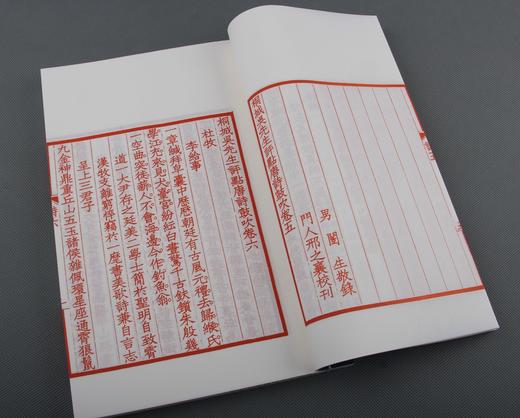 桐城吳先生評點唐詩鼓吹卷五
男闓生敬錄
門人邢之襄校刊
桐城吳先生評點唐詩鼓吹卷六
杜牧
李給事
一章緘拜皁囊中慄慄朝廷有古風元禮去歸緱氏
學江充來見犬臺宮紛紜白晝驚千古鈇鑕朱殷幾
一空曲突徙薪人不會海邊今作釣魚翁
道一大尹存之延美二學士簡於聖明自致霄
漢牧支離窮悴竊於一麾書美歌詩兼自言志
呈上三君子
九金神鼎重丘山五玉諸侯雜佩環星座通霄狼鬣